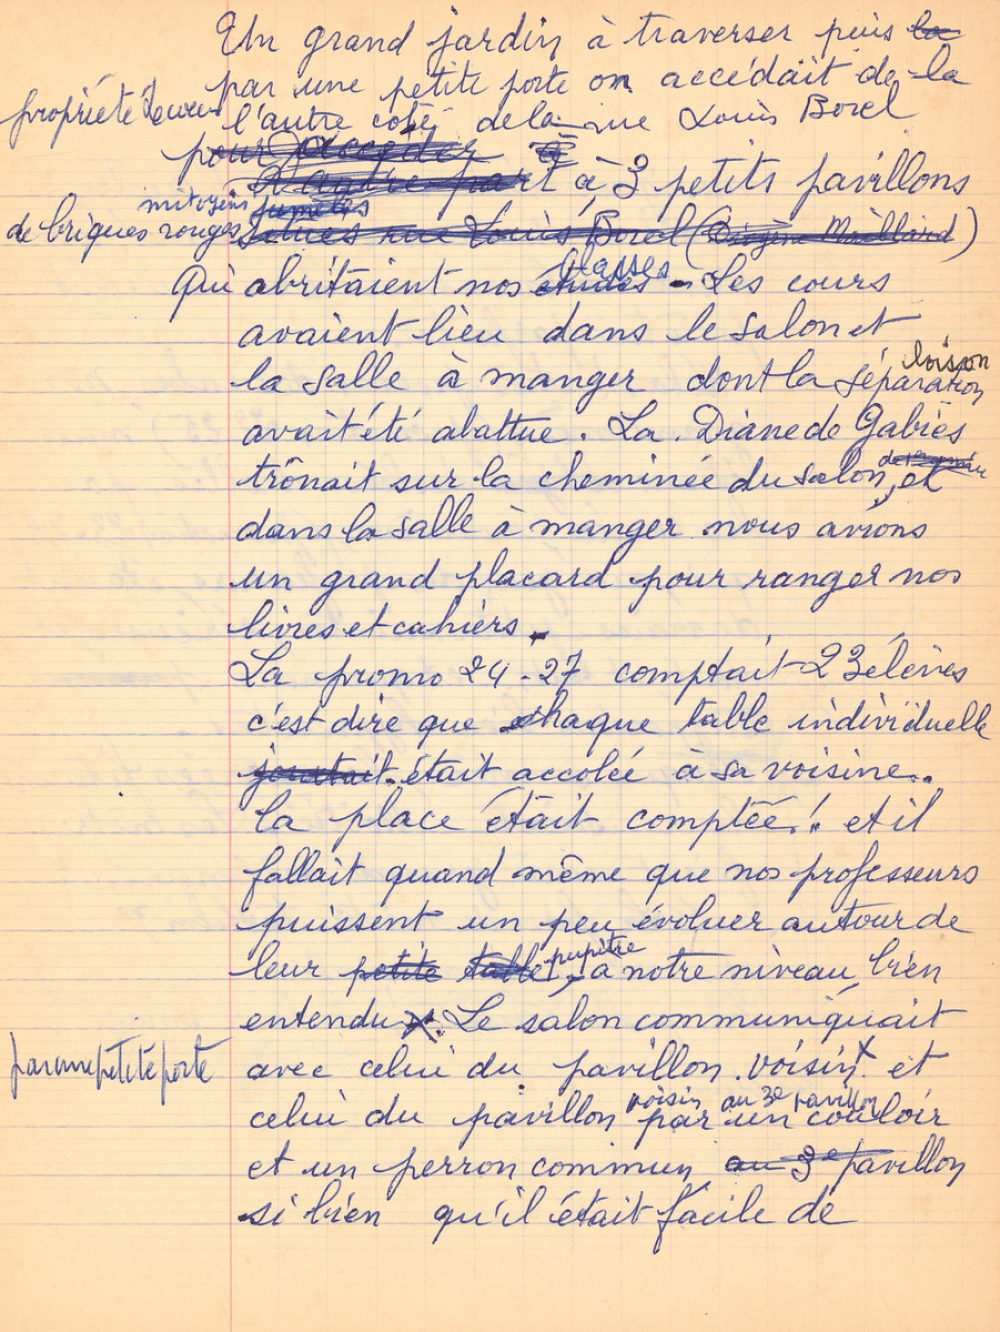 Un grand jardin à traverser puis la
par une petite porte on accédait de la
propriété
l'autre coté de la rue Louis Borel
pour accéder à
D'autre part à 3 petits pavillons
mitoyens jumelés
de briques rouges situés rue Louis Borel (Diogène Maillard)
classes
Qui abritaient nos études. Les cours
avaient lieu dans le salon et
cloison
la salle à manger dont la séparation
avait été abattue. La Diane de Gabies
trônait sur la cheminée du salon, et
dans la salle à manger nous avions
un grand placard pour ranger nos
livres et cahiers.
La promo 24-27 comptait 23 élèves
c'est dire que chaque table individuelle
jouxtait était accolée à sa voisine..
la place était comptée! et il
fallait quand même que nos professeurs
puissent un peu évoluer autour de
pupitre
leur petite table, à notre niveau bien
entendu. Le salon communiquait
par une petite porte
avec celui du pavillon voisin x et
voisin au 3e pavillon
celui du pavillon par un couloir
et un perron commun, au 3e pavillon
si bien qu'il était facile de